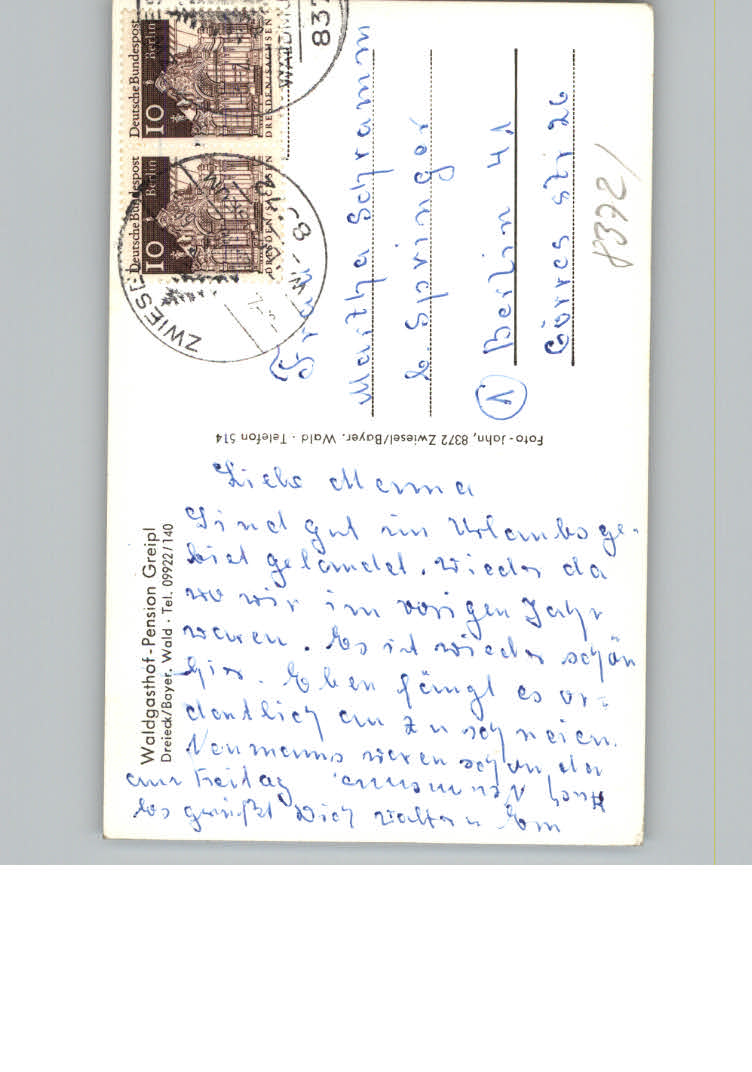 Waldgasthof-Pension Greipl
Dreieck/Bayer. Wald · Tel. 09922/140
Liebe Mama
Sind gut im Urlaubsge-
biet gelandet. Wieder da
wo wir im vorigen Jahr
waren. Es ist wieder schön
hier. Eben fängt es or-
dentlich an zu schneien.
Neumanns waren schon da
am Freitag
Auch Neumanns.
Es grüßt Dich Walter u.
Foto-Jahn, 8372 Zwiesel/Bayer. Wald · Telefon 514
Deutsche Bundespost
Berlin
10
DRESDEN/SACHSEN
Deutsche Bundespost
Berlin
10
DRESDEN/SACHSEN
ZWIESEL
837
Frau
Martha Schramm
b. Springer
1 Berlin 41
Görres str 26
8372/